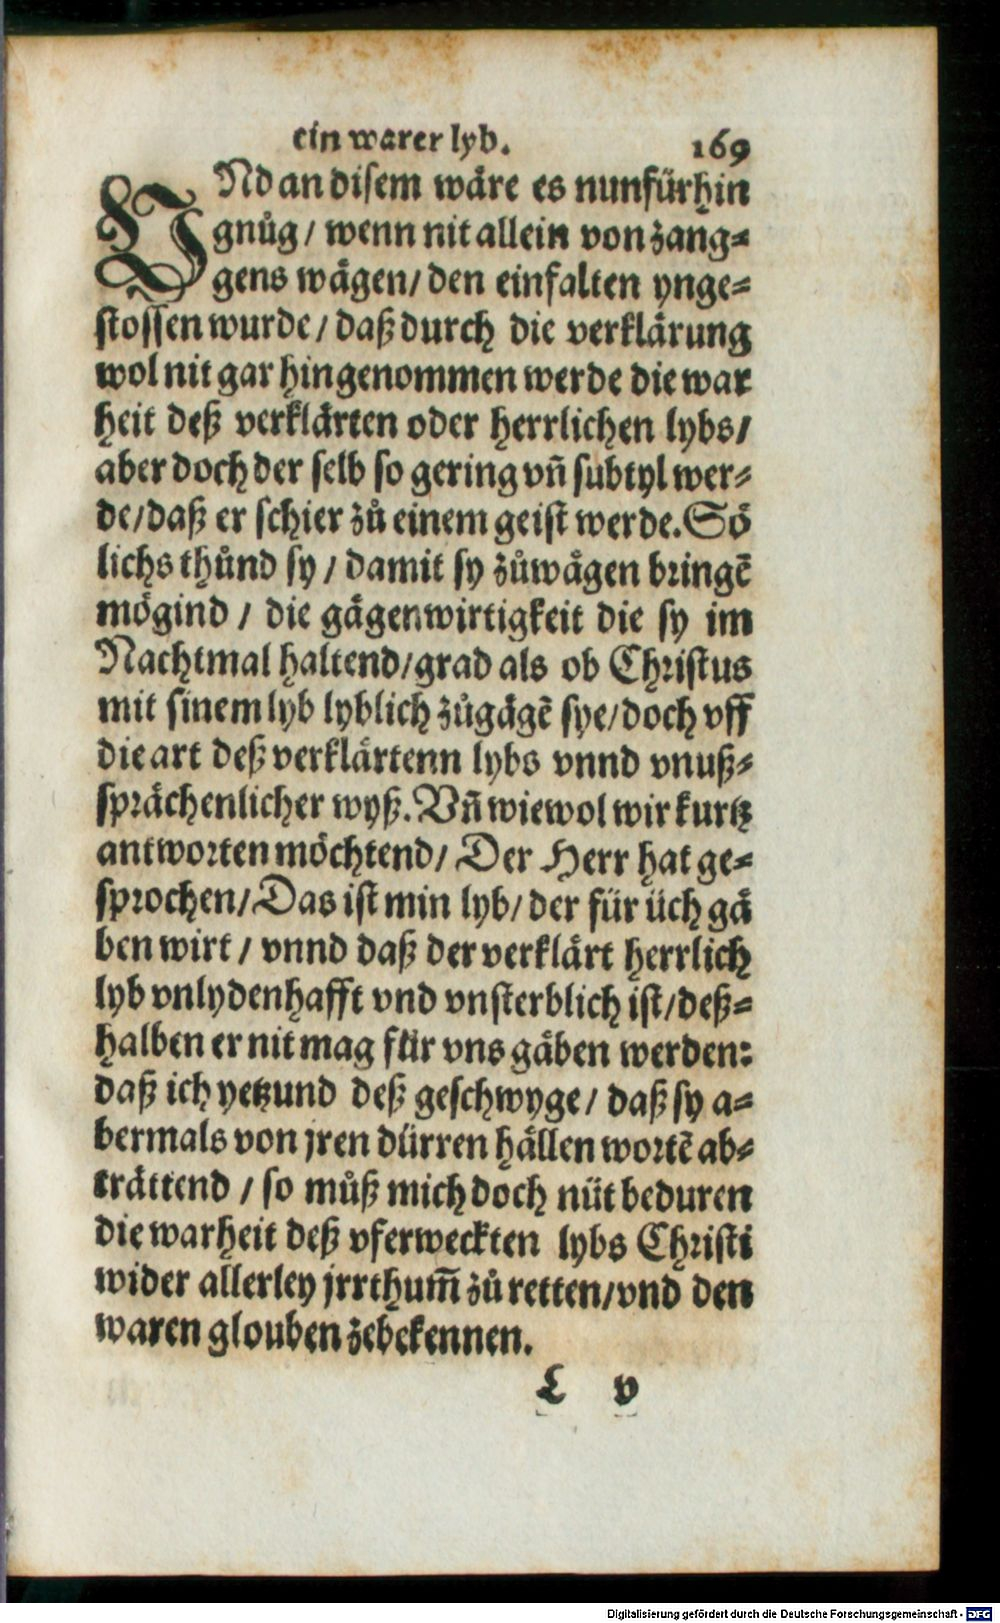 ein warer lyb. 169
VNd an disem wäre es nunfürhin
gnůg / wenn nit allein von zang⸗
gens wägen / den einfalten ynge⸗
stossen wurde / daß durch die verklärung
wol nit gar hingenommen werde die war
heit deß verklärten oder herrlichen lybs /
aber doch der selb so gering vñ subtyl wer⸗
de / daß er schier zů einem geist werde. Sö
lichs thůnd sy / damit sy zůwägen bringẽ
mögind / die gägenwirtigkeit die sy im
Nachtmal haltend / grad als ob Christus
mit sinem lyb lyblich zůgägẽ sye / doch vff
die art deß verklärtenn lybs vnnd vnuß⸗
sprächenlicher wyß. Vñ wiewol wir kurtz
antworten möchtend / Der Herr hat ge⸗
sprochen / Das ist min lyb / der für üch gä
ben wirt / vnnd daß der verklärt herrlich
lyb vnlydenhafft vnd vnsterblich ist / deß⸗
halben er nit mag für vns gäben werden:
daß ich yetzund deß geschwyge / daß sy a⸗
bermals von jren dürren hällen wortẽ ab⸗
trättend / so můß mich doch nüt beduren
die warheit deß vferweckten lybs Christi
wider allerley jrrthum̃ zů retten / vnd den
waren glouben zebekennen.
L v
Digitalisierung gefördert durch die Deutsche Forschungsgemeinschaft - DFG